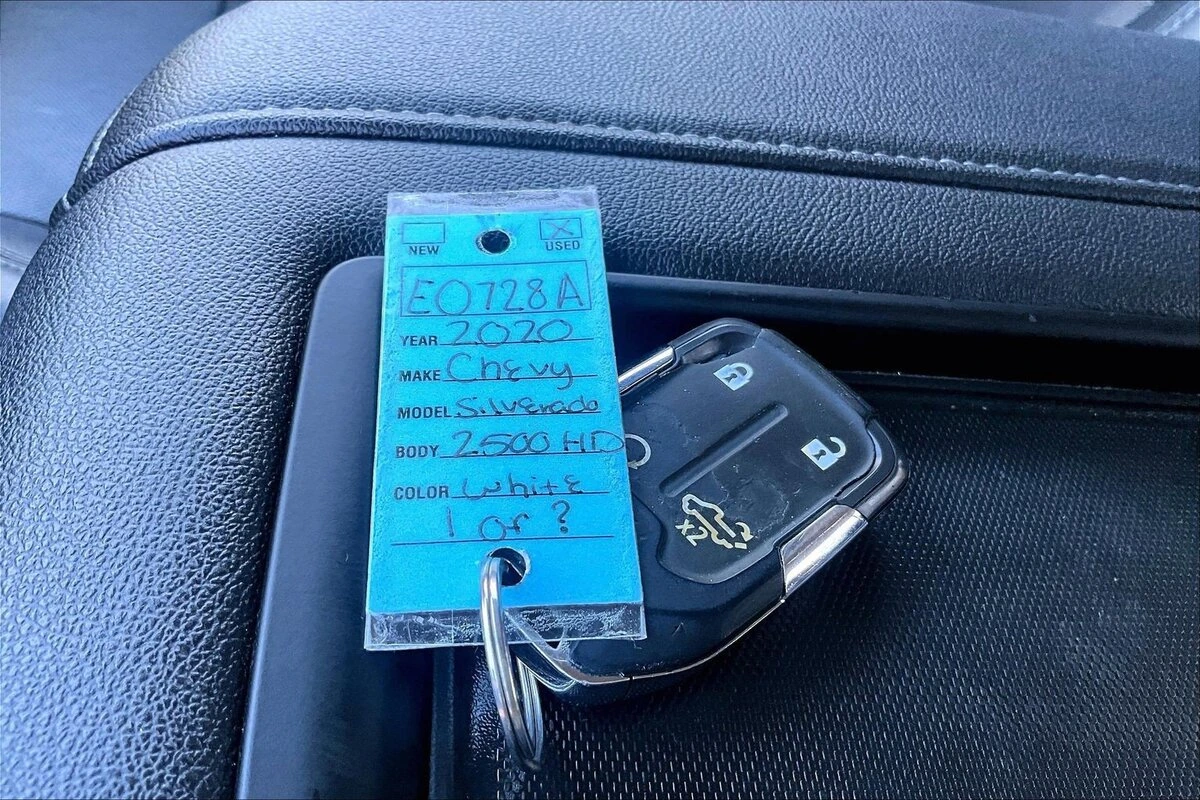 NEW USED
E0728A
YEAR 2020
MAKE Chevy
MODEL Silverado
BODY 2500 HD
COLOR White
1 or ?
X2